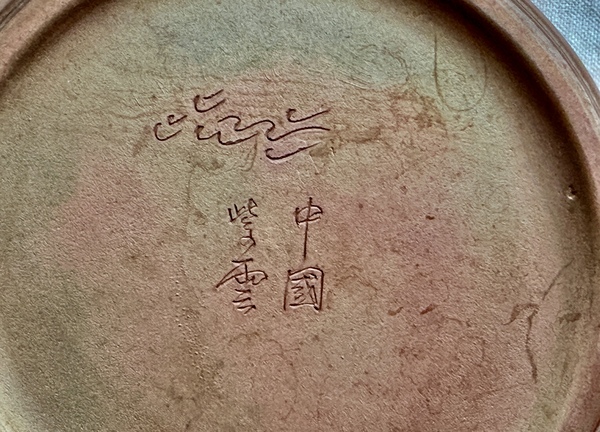 中國
紫雲